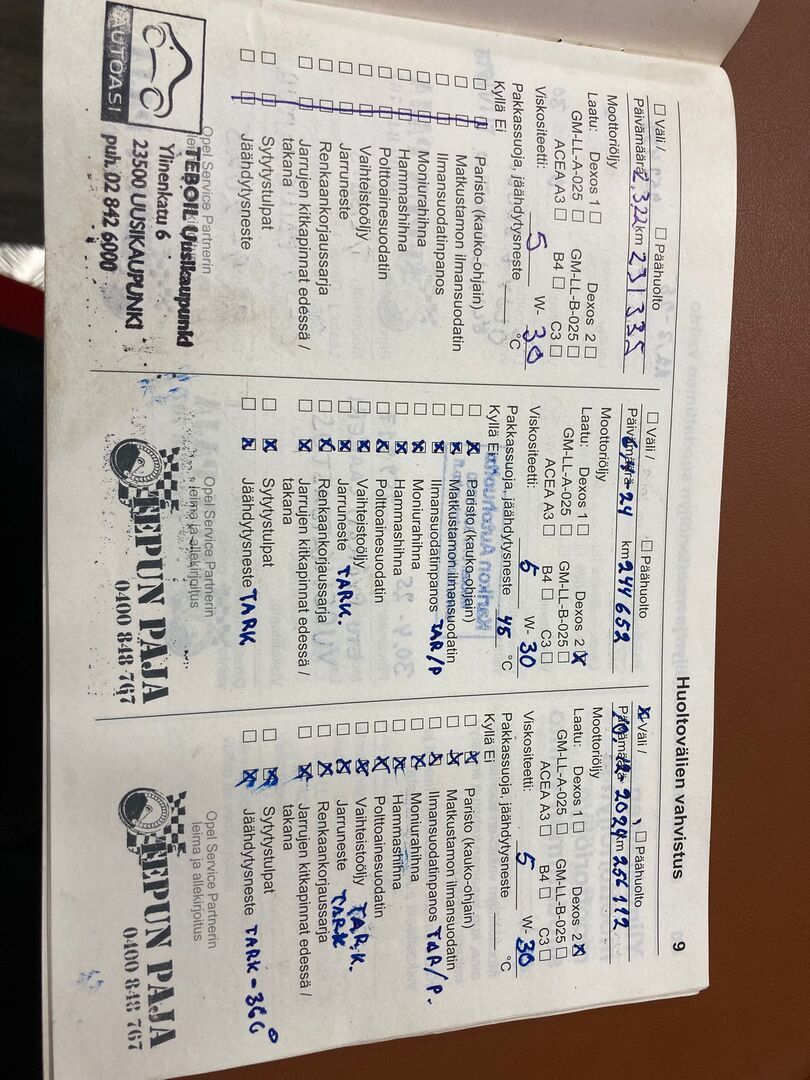 Huoltovälien vahvistus 9
☐ Väli / ☐ Päähuolto
Päivämäärä 2.3.22 km 231335
Moottoriöljy
Laatu: Dexos 1 ☐ Dexos 2 ☐
GM-LL-A-025 ☐ GM-LL-B-025 ☐
ACEA A3 ☐ B4 ☐ C3 ☐
Viskositeetti: 5 W- 30
Pakkassuoja, jäähdytysneste °C
Kyllä Ei
Paristo (kauko-ohjain)
Matkustamon ilmansuodatin
Ilmansuodatinpanos
Moniurahihna
Hammashihna
Polttoainesuodatin
Vaihteistoöljy
Jarruneste
Renkaankorjaussarja
Jarrujen kitkapinnat edessä /
takana
Sytytystulpat
Jäähdytysneste
Opel Service Partnerin
AUTOASI
TEBOIL Uusikaupunki
Ylinenkatu 6
23500 UUSIKAUPUNKI
puh. 02 842 6000
☐ Väli / ☐ Päähuolto
Päivämäärä 4.24 km 244652
Moottoriöljy
Laatu: Dexos 1 ☐ Dexos 2 ☒
GM-LL-A-025 ☐ GM-LL-B-025 ☐
ACEA A3 ☐ B4 ☐ C3 ☐
Viskositeetti: 5 W- 30
Pakkassuoja, jäähdytysneste 45 °C
Kyllä Ei
☐ ☒ Paristo (kauko-ohjain)
☐ ☒ Matkustamon ilmansuodatin
☐ ☒ Ilmansuodatinpanos TAR/P
☐ ☒ Moniurahihna
☐ ☒ Hammashihna
☐ ☒ Polttoainesuodatin
☐ ☒ Vaihteistoöljy
☐ ☒ Jarruneste TARK.
☐ ☒ Renkaankorjaussarja
☐ ☒ Jarrujen kitkapinnat edessä /
takana
☐ ☒ Sytytystulpat
☐ ☒ Jäähdytysneste TARK
Opel Service Partnerin
leima ja allekirjoitus
TEPUN PAJA
0400 848 767
☒ Väli / ☐ Päähuolto
Päivämäärä 10.12.2024 km 256112
Moottoriöljy
Laatu: Dexos 1 ☐ Dexos 2 ☒
GM-LL-A-025 ☐ GM-LL-B-025 ☐
ACEA A3 ☐ B4 ☐ C3 ☐
Viskositeetti: 5 W- 30
Pakkassuoja, jäähdytysneste °C
Kyllä Ei
☐ ☒ Paristo (kauko-ohjain)
☐ ☒ Matkustamon ilmansuodatin
☐ ☒ Ilmansuodatinpanos TAR/P.
☐ ☒ Moniurahihna
☐ ☒ Hammashihna
☐ ☒ Polttoainesuodatin
☐ ☒ Vaihteistoöljy TARK.
☐ ☒ Jarruneste TARK
☐ ☒ Renkaankorjaussarja
☐ ☒ Jarrujen kitkapinnat edessä /
takana
☐ ☒ Sytytystulpat
☐ ☒ Jäähdytysneste TARK -36C°
Opel Service Partnerin
leima ja allekirjoitus
TEPUN PAJA
0400 848 767